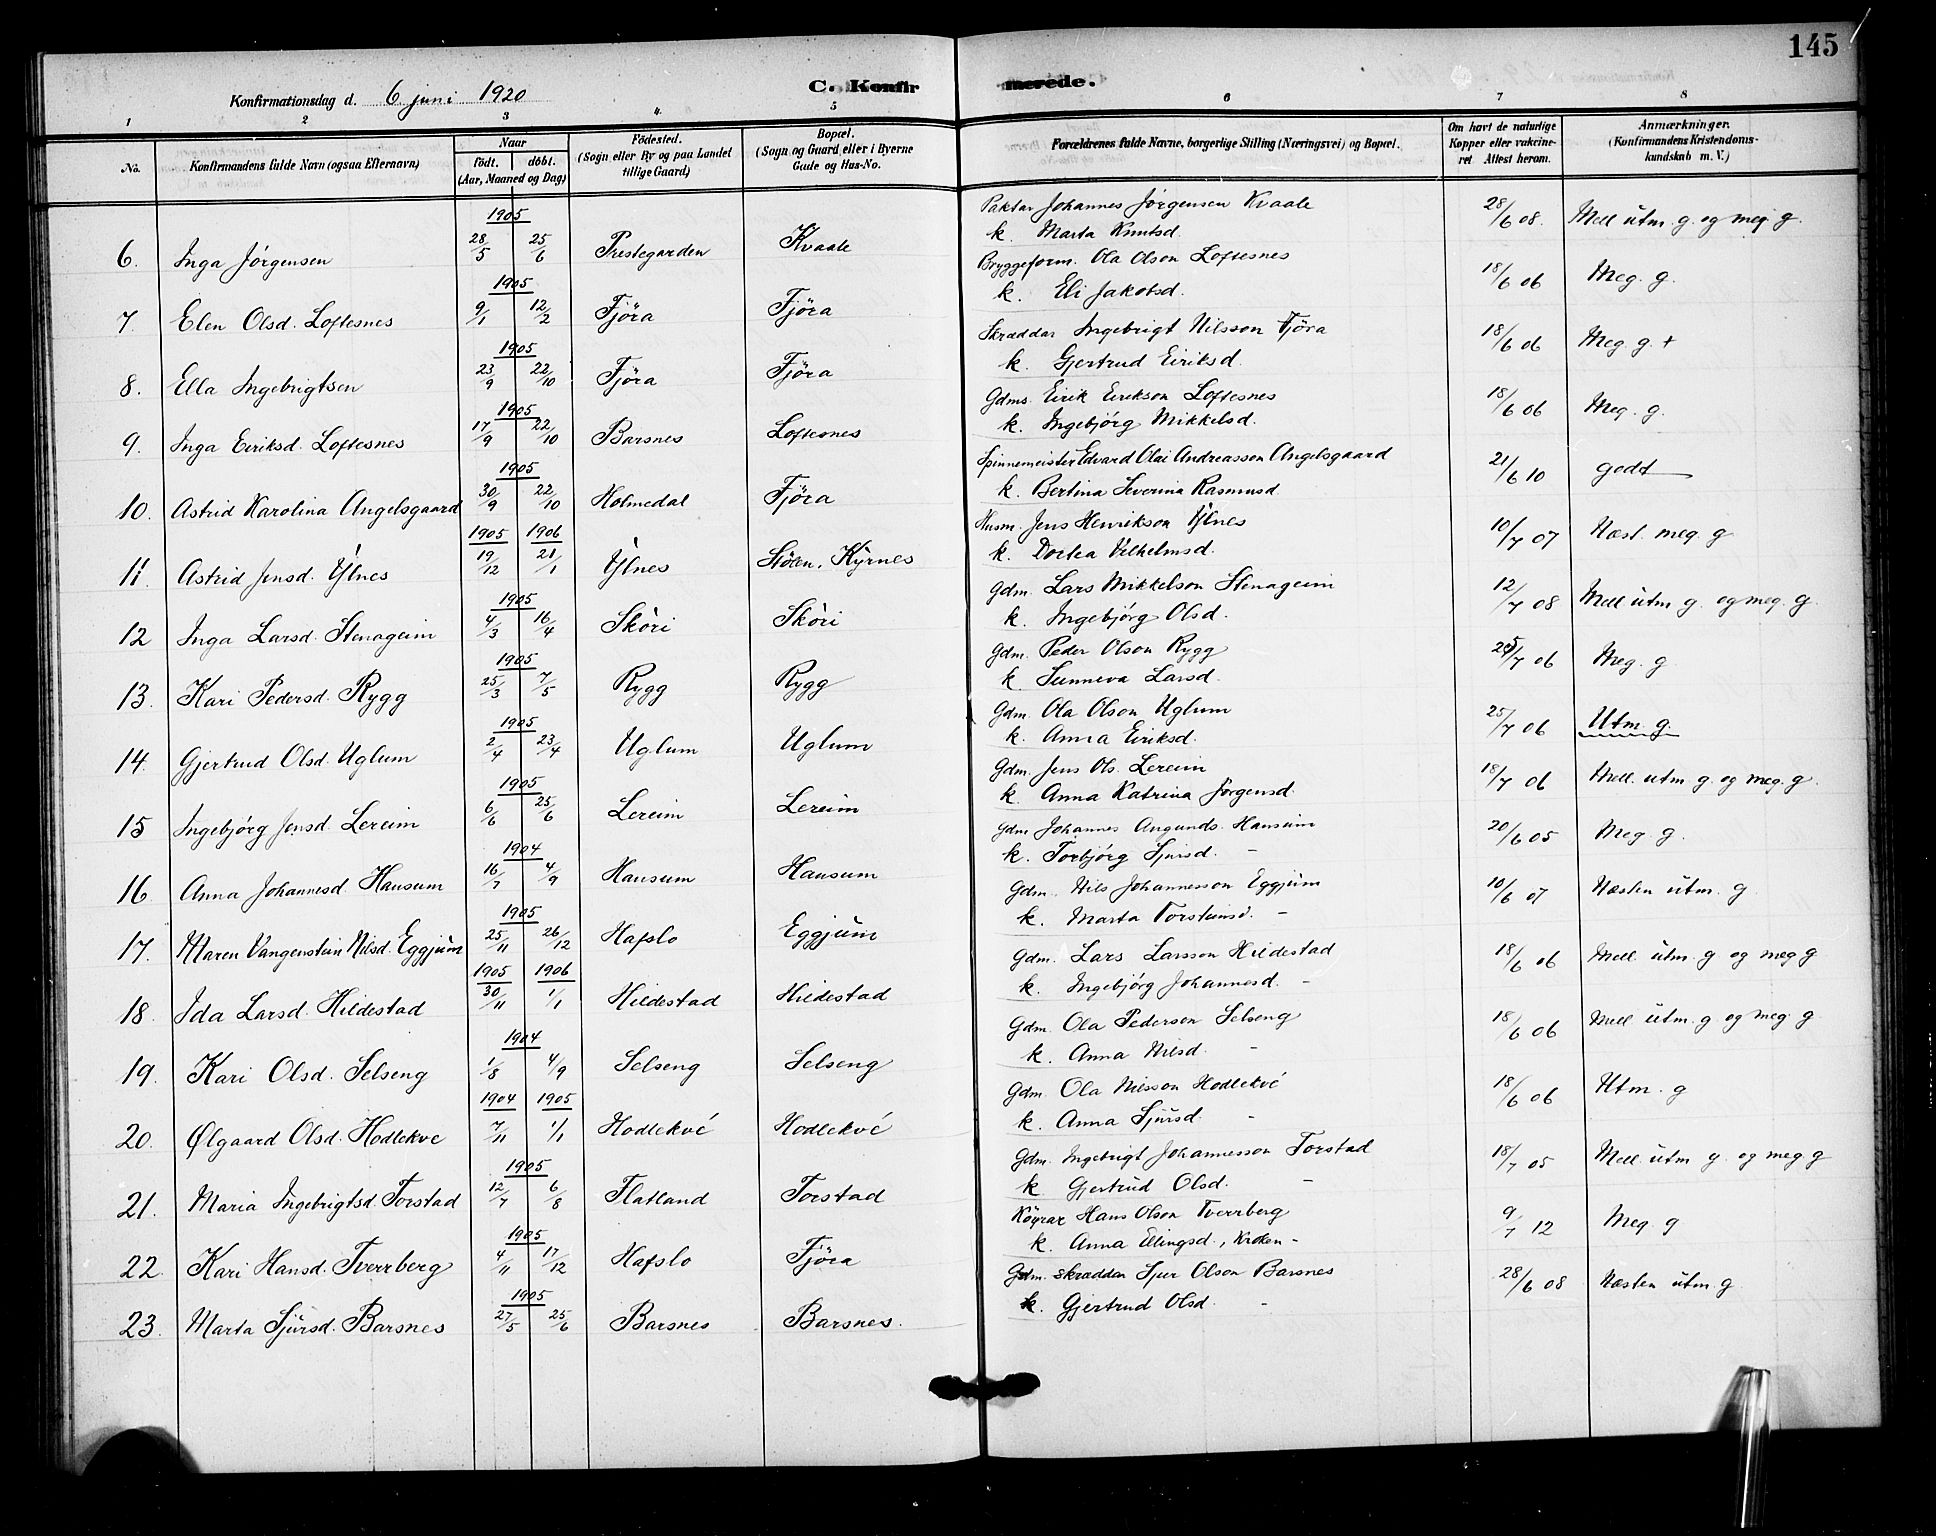 145
Konfirmationsdag d. 6 juni 1920 C. Konfirmerede.
1 2 3 4. 5 6 7 8
No. Konfirmandens fulde Navn (ogsaa Efternavn) Naar födt. döbt. (Aar, Maaned og Dag) Födested. (Sogn eller By og paa Landet tillige Gaard) Bopæl. (Sogn og Gaard eller i Byerne Gade og Hus-No. Forældrenes fulde Navne, borgerlige Stilling (Næringsvei) og Bopæl. Om havt de naturlige Kopper eller vakcineret Attest herom. Anmærkninger. (Konfirmandens Kristendomskundskab m. V.)
1905 Paktar Johannes Jörgensen Kvaale
6. Inga Jörgensen 28/5 25/6 Prestegarden Kvaale k. Marta Knutsd. 28/6 08. Mell utm g. og meg g.
1905 Bryggeform. Ola Olson Loftesnes
7. Elen Olsd. Loftesnes 9/1 12/2 Fjöra Fjöra k. Eli Jakobsd. 18/6 06 Meg. g.
1905 Skræddar Ingebrigt Nilsson Fjöra
8. Ella Ingebrigtsen 23/9 22/10 Fjöra Fjöra k. Gjertrud Eiriksd. 18/6 06 Meg. g. +
1905 Gdms. Eirik Eirikson Loftesnes
9. Inga Eiriksd. Loftesnes 17/9 22/10 Barsnes Loftesnes k. Ingebjörg Mikkelsd. 18/6 06 Meg. g.
1905 Spinnemeister Edvard Olai Andreasson Angelsgaard
10. Astrid Karolina Angelsgaard 30/9 22/10 Holmedal Fjöra k. Bertina Severina Rasmusd. 21/6 10 godt
1905 1906 Husm. Jens Henrikson Ylnes
11. Astrid Jensd. Ylnes 19/12 21/1 Ylnes Stöen, Kyrnes k. Dortea Vilhelmsd. 10/7 07 Næst. meg. g
1905 Gdm. Lars Mikkelson Stenageim
12 Inga Larsd. Stenageim 4/3 16/4 Sköri Sköri k. Ingebjörg Olsd. 12/7 08 Mell utm g. og meg. g.
1905 Gdm. Peder Olson Rygg
13. Kari Pedersd. Rygg 25/3 7/5 Rygg Rygg k. Sunneva Larsd. 25/7 06 Meg. g
1905 Gdm. Ola Olson Uglum
14. Gjertrud Olsd. Uglum 2/4 23/4 Uglum Uglum k. Anna Eiriksd. 25/7 06 Utm. g.
1905 Gdm. Jens Ols. Lereim
15 Ingebjörg Jensd. Lereim 6/6 25/6 Lereim Lereim k. Anna Katrina Jörgensd. 18/7 06 Mell. utm g. og meg. g.
1904 Gdm Johannes Angunds. Hansum
16 Anna Johannesd. Hansum 16/7 4/9 Hansum Hansum k. Torbjörg Sjursd. – 20/6 05 Meg. g.
1905 Gdm. Nils Johannesson Eggjum
17. Maren Vangenstein Nilsd. Eggjum 25/11 26/12 Hafslo Eggjum k. Marta Torsteinsd. – 10/6 07 Næsten utm. g
1905 1906 Gdm. Lars Larsson Hildestad
18. Ida Larsd. Hildestad 30/11 1/1 Hildestad Hildestad k. Ingebjörg Johannesd. – 18/6 06 Mell. utm. g og meg g
1904 Gdm. Ola Pederson Selseng
19. Kari Olsd. Selseng 1/8 4/9 Selseng Selseng k. Anna Nilsd. – 18/6 06 Mell utm. g og meg. g
1904 1905 Gdm. Ola Nilsson Hodlekvé
20. Ølgaard Olsd. Hodlekve 7/11 1/1 Hodlekvé Hodlekvé k. Anna Sjursd. – 18/6 06 Utm. g
1905 Gdm. Ingebrigt Johannesson Torstad
21. Maria Ingebrigtsd. Torstad 12/7 6/8 Flatland Torstad k Gjertrud Olsd. – 18/7 05 Mell. utm g. og meg. g
1905 Köyrar Hans Olson Tverrberg
22. Kari Hansd. Tverrberg 4/11 17/12 Hafslo Fjöra k. Anna Ellingsd., Kroken – 9/7 12 Meg. g
1905 Gdm. skraddar Sjur Olson Barsnes
23. Marta Sjursd. Barsnes 27/5 25/6 Barsnes Barsnes. k. Gjertrud Olsd. – 28/6 08 Næsten utm. g